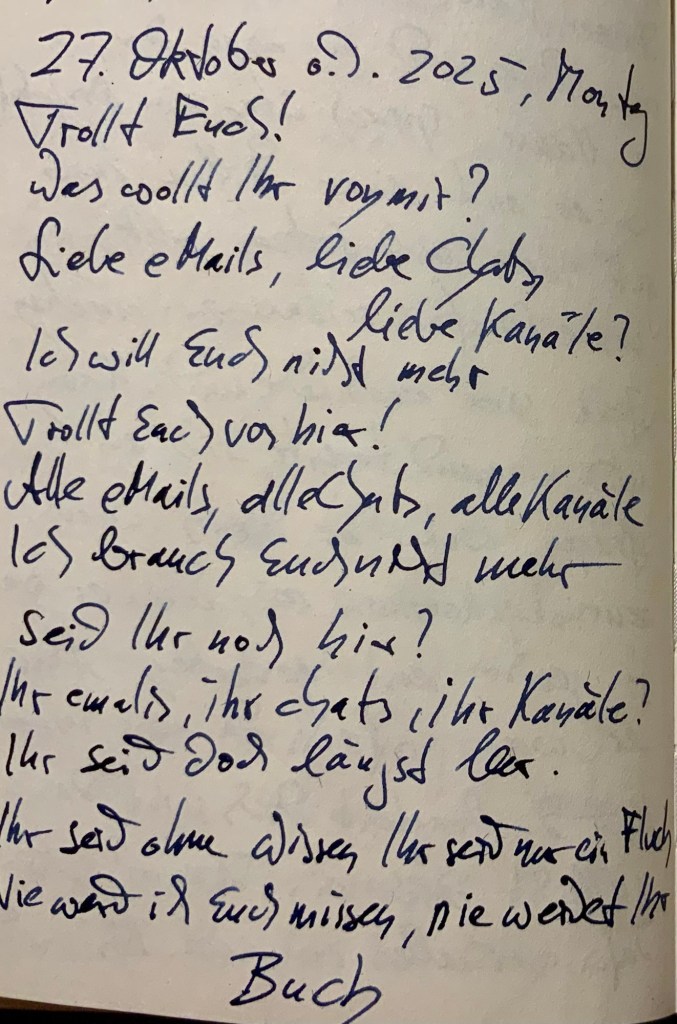 27. Oktober a.D. 2025, Montag
Trollt Euch!
Was wollt Ihr von mir?
Liebe eMails, liebe Chats,
liebe Kanäle?
Ich will Euch nicht mehr
Trollt Euch von hier!
Alle eMails, alle Chats, alle Kanäle
Ich brauch Euch nicht mehr
Seid Ihr noch hier?
Ihr emails, ihr chats, ihr Kanäle?
Ihr seid doch längst leer.
Ihr seid ohne Wissen Ihr seid nur ein Fluch
Nie werd ich Euch missen, nie werdet Ihr
Buch